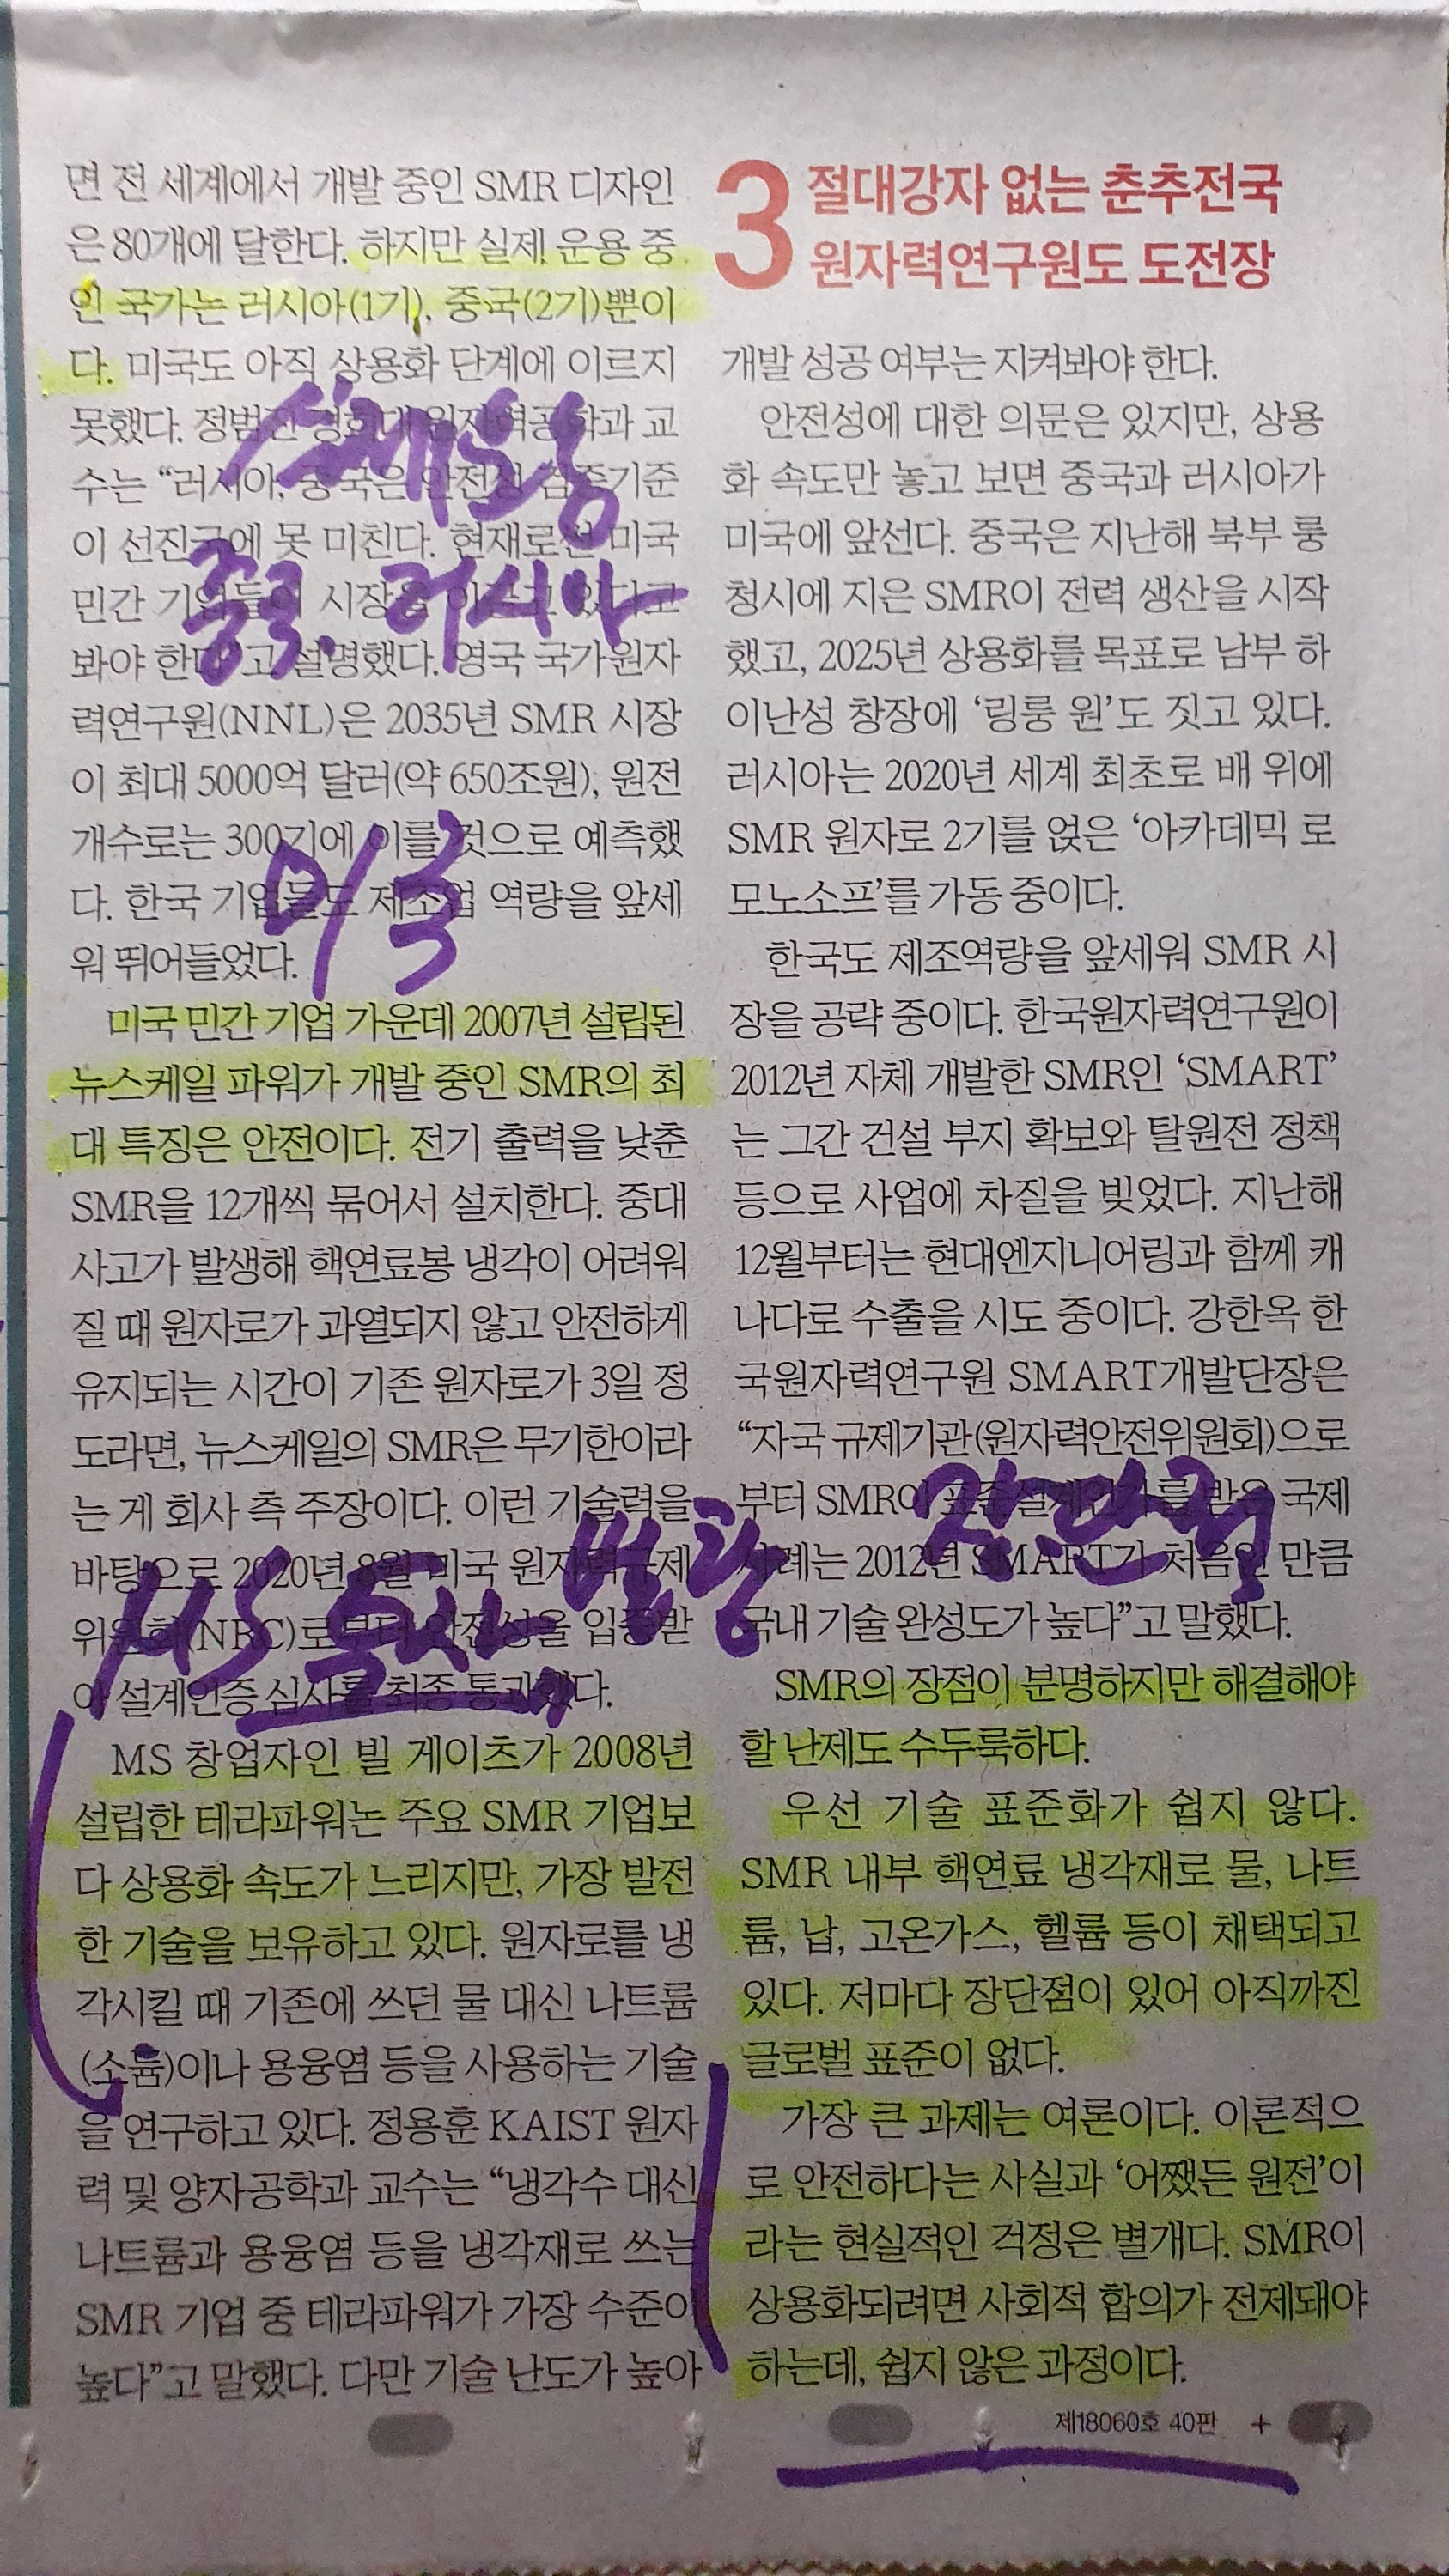 면 전 세계에서 개발 중인 SMR 디자인
은 80개에 달한다. 하지만 실제 운용 중
인 국가는 러시아(1기), 중국(2기)뿐이
다. 미국도 아직 상용화 단계에 이르지
못했다. 정범진 경희대 원자력공학과 교
수는 “러시아, 중국은 안전성 검증기준
이 선진국에 못 미친다. 현재로선 미국
민간 기업들이 시장을 이끌고 있다고
봐야 한다”고 설명했다. 영국 국가원자
력연구원(NNL)은 2035년 SMR 시장
이 최대 5000억 달러(약 650조원), 원전
개수로는 300기에 이를 것으로 예측했
다. 한국 기업들도 제조업 역량을 앞세
워 뛰어들었다.
미국 민간 기업 가운데 2007년 설립된
뉴스케일 파워가 개발 중인 SMR의 최
대 특징은 안전이다. 전기 출력을 낮춘
SMR을 12개씩 묶어서 설치한다. 중대
사고가 발생해 핵연료봉 냉각이 어려워
질 때 원자로가 과열되지 않고 안전하게
유지되는 시간이 기존 원자로가 3일 정
도라면, 뉴스케일의 SMR은 무기한이라
는 게 회사 측 주장이다. 이런 기술력을
바탕으로 2020년 8월 미국 원자력규제
위원회(NRC)로부터 안전성을 입증받
아 설계인증 심사를 최종 통과했다.
MS 창업자인 빌 게이츠가 2008년
설립한 테라파워는 주요 SMR 기업보
다 상용화 속도가 느리지만, 가장 발전
한 기술을 보유하고 있다. 원자로를 냉
각시킬 때 기존에 쓰던 물 대신 나트륨
(소듐)이나 용융염 등을 사용하는 기술
을 연구하고 있다. 정용훈 KAIST 원자
력 및 양자공학과 교수는 “냉각수 대신
나트륨과 용융염 등을 냉각재로 쓰는
SMR 기업 중 테라파워가 가장 수준이
높다”고 말했다. 다만 기술 난도가 높아
중국. 러시아
MS
3 절대강자 없는 춘추전국
원자력연구원도 도전장
개발 성공 여부는 지켜봐야 한다.
안전성에 대한 의문은 있지만, 상용
화 속도만 놓고 보면 중국과 러시아가
미국에 앞선다. 중국은 지난해 북부 룽
청시에 지은 SMR이 전력 생산을 시작
했고, 2025년 상용화를 목표로 남부 하
이난성 창장에 ‘링룽 원’도 짓고 있다.
러시아는 2020년 세계 최초로 배 위에
SMR 원자로 2기를 얹은 ‘아카데믹 로
모노소프’를 가동 중이다.
한국도 제조역량을 앞세워 SMR 시
장을 공략 중이다. 한국원자력연구원이
2012년 자체 개발한 SMR인 ‘SMART’
는 그간 건설 부지 확보와 탈원전 정책
등으로 사업에 차질을 빚었다. 지난해
12월부터는 현대엔지니어링과 함께 캐
나다로 수출을 시도 중이다. 강한옥 한
국원자력연구원 SMART개발단장은
“자국 규제기관(원자력안전위원회)으로
부터 SMR이 표준설계인가를 받은 국제
사례는 2012년 SMART가 처음인 만큼
국내 기술 완성도가 높다”고 말했다.
SMR의 장점이 분명하지만 해결해야
할 난제도 수두룩하다.
우선 기술 표준화가 쉽지 않다.
SMR 내부 핵연료 냉각재로 물, 나트
륨, 납, 고온가스, 헬륨 등이 채택되고
있다. 저마다 장단점이 있어 아직까진
글로벌 표준이 없다.
가장 큰 과제는 여론이다. 이론적으
로 안전하다는 사실과 ‘어쨌든 원전’이
라는 현실적인 걱정은 별개다. SMR이
상용화되려면 사회적 합의가 전제돼야
하는데, 쉽지 않은 과정이다.
제18060호 40판 +